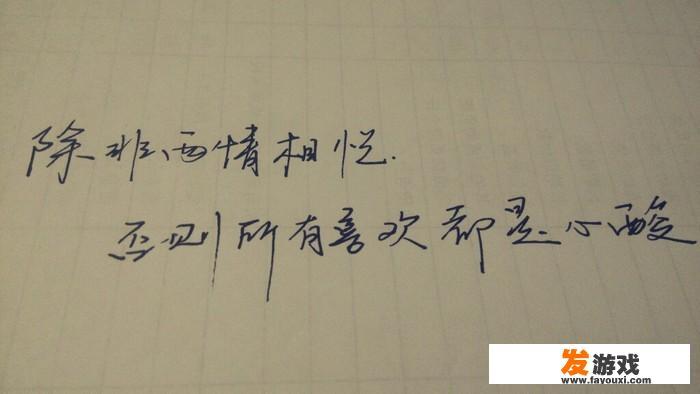 除非两情相悦.
否则所有喜欢都是心酸
发游戏
www.fayouxi.com